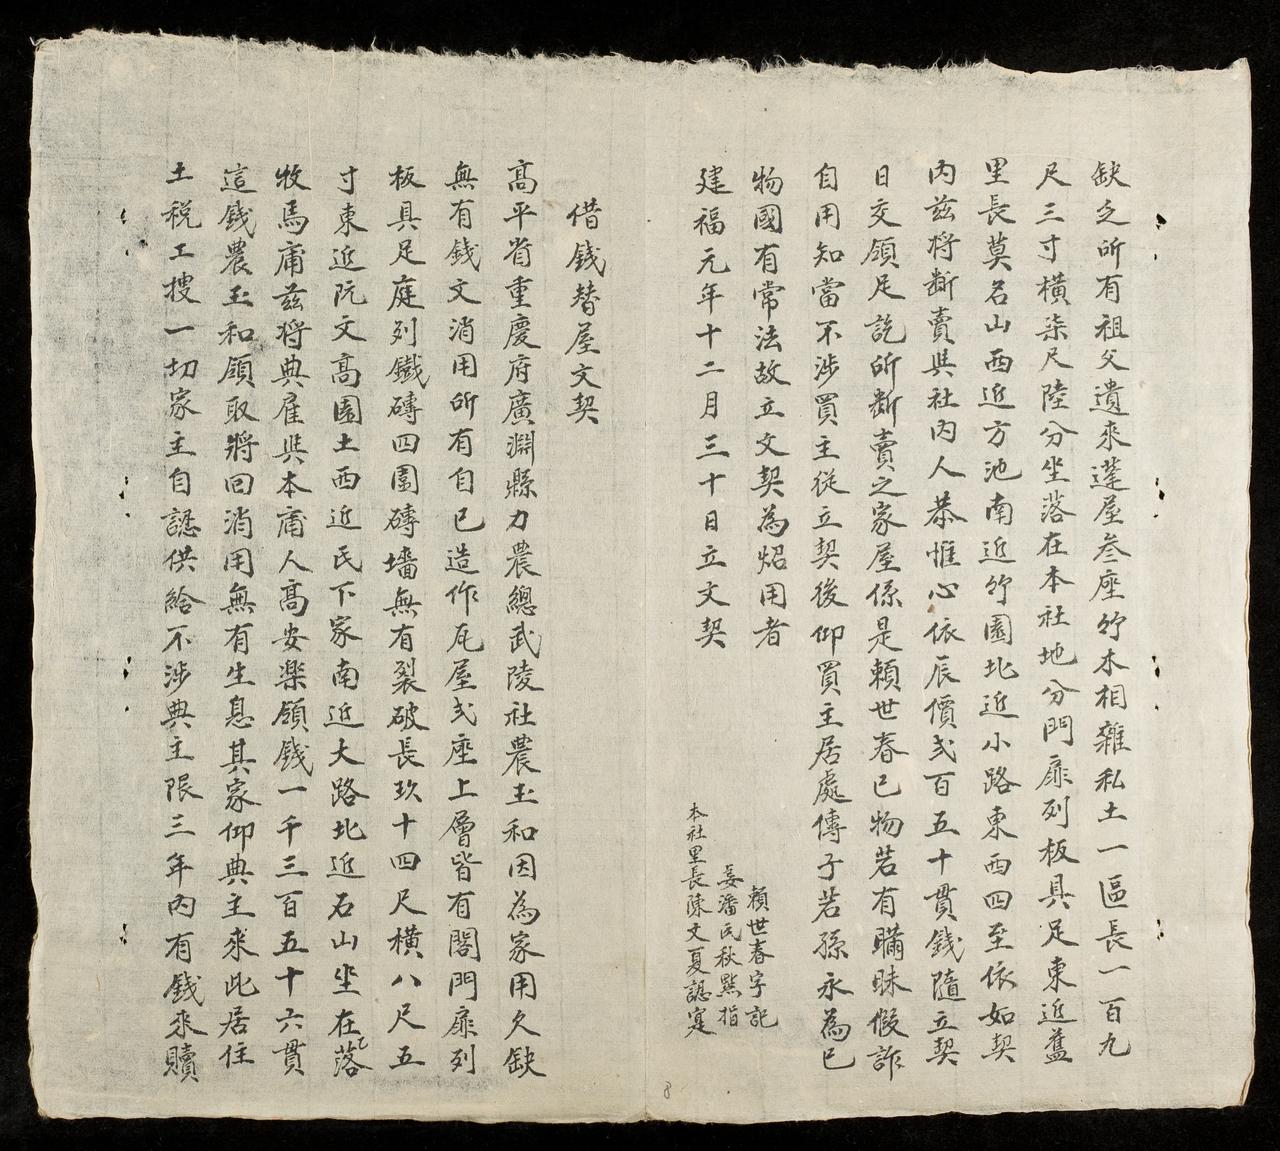 缺乏所有祖父遺來蓬屋叁座竹木相雜私土一區長一百九
尺三寸橫柒尺陸分坐落在本社地分門扉列板具足東近舊
里長莫名山西近方池南近竹園北近小路東西四至依如契
內茲將斷賣與社內人恭惟心依辰價弍百五十貫錢隨立契
日交領足訖所斷賣之家屋係是賴世春己物若有瞞昧假詐
自用知當不涉買主從立契後仰買主居處傳子若孫永為己
物國有常法故立文契為炤用者
建福元年十二月三十日立文契
賴世春字記
妾潘氏秋點指
本社里長陳文夏認寔
借錢替屋文契
高平省重慶府廣淵縣力農總武陵社農玉和因為家用久缺
無有錢文消用所有自己造作瓦屋弍座上層皆有閣門扉列
板具足庭列鐵磚四圍磚墻無有裂破長玖十四尺橫八尺五
寸東近阮文高園土西近民下家南近大路北近石山坐在落
牧馬庯茲將典雇與本庯人高安楽領錢一千三百五十六貫
這錢農玉和領取將回消用無有生息其家仰典主來此居住
土税工搜一切家主自認供給不涉典主限三年內有錢來贖
8